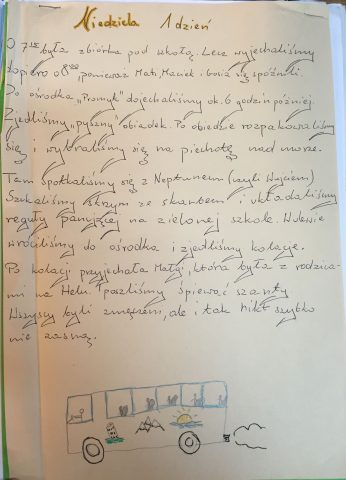 Niedziela 1 dzień
O 7¹⁵ była zbiórka pod szkołą. Lecz wyjechaliśmy
dopiero o 8⁰⁰, ponieważ Mati, Maciek i Gosia się spóźnili.
Do ośrodka „Promyk" dojechaliśmy ok. 6 godzin później.
Zjedliśmy „pyszny" obiadek. Po obiedzie rozpakowaliśmy
się i wybraliśmy się na piechotę nad morze.
Tam spotkaliśmy się z Neptunem (czyli Wujciem)
Szukaliśmy skrzyni ze skarbem i układaliśmy
reguły panujące na zielonej szkole.
wróciliśmy do ośrodka i zjedliśmy kolację.
Po kolacji przyjechała która była z rodzica-
mi na Helu. I poszliśmy śpiewać szanty
Wszyscy byli zmęczeni, ale i tak nikt szybko
nie zasnął.